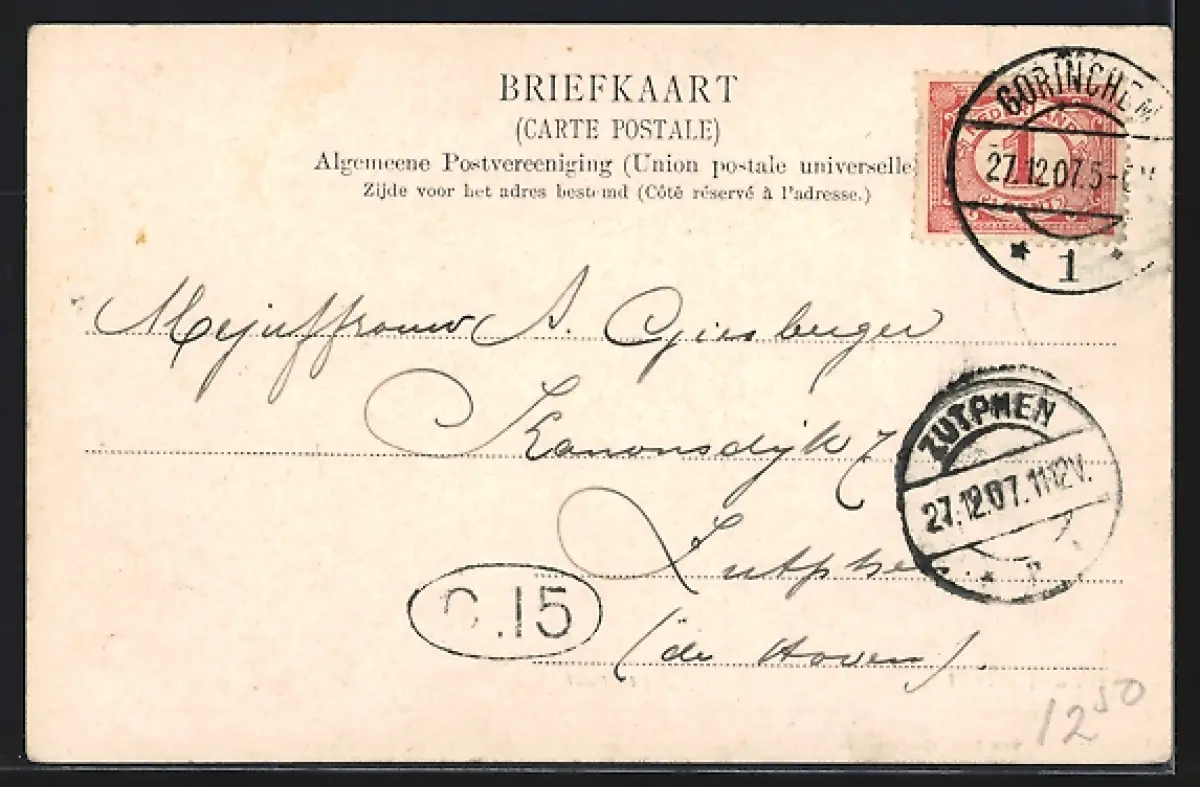 BRIEFKAART
(CARTE POSTALE)
Algemeene Postvereeniging (Union postale universelle)
Zijde voor het adres bestemd (Côté réservé à l'adresse.)
NEDERLAND
1
CENT
GORINCHEM
27.12.07.5-6V
1
Mejuffrouw A. Giesberger
Kanonsdijk 7
Zutphen
(de Hoven).
ZUTPHEN
27.12.07.11-12V.
C.15
12 50